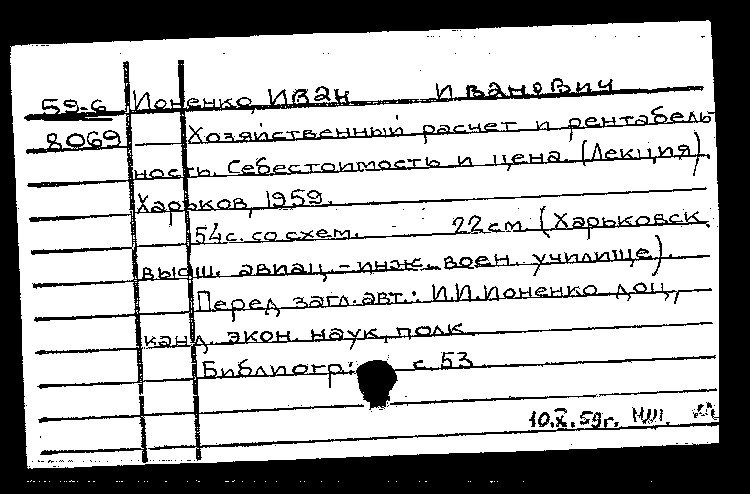 59-6 Ионенко, Иван Иванович
8069 Хозяйственный расчет и рентабель-
ность. Себестоимость и цена. (Лекция).
Харьков, 1959.
54с. со схем. 22см. (Харьковск.
высш. авиац.-инж. воен. училище).
Перед загл. авт.: И.И.Ионенко доц.,
канд. экон. наук, полк.
Библиогр: с. 53
10.X.59г.